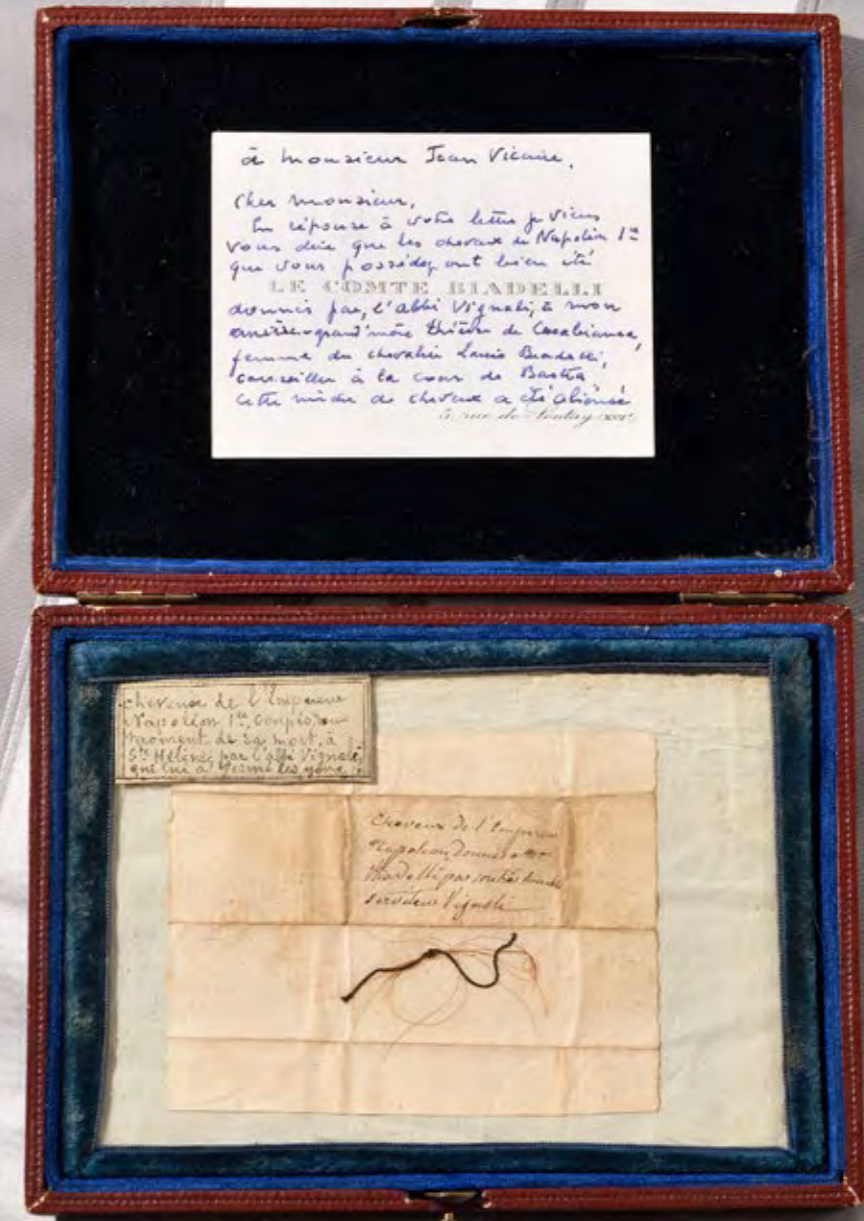 à Monsieur Jean Vicaire,
Cher Monsieur,
En réponse à votre lettre je viens
vous dire que les cheveux de Napoléon 1er
que vous possédez ont bien été
LE COMTE BIADELLI
donnés par, l'abbé Vignali, à mon
arrière-grand'mère de Casabianca,
femme du chevalier Louis Biadelli,
conseiller à la cour de Bastia
cette mèche de cheveux a été
5, rue de
Cheveux de l'Empereur
Napoléon 1er, coupés, au
moment de sa mort, à
Ste Hélène, par l'abbé Vignali,
qui lui a fermé les yeux.
Cheveux de l'Empereur
Napoleon, donnés a
Biadelli par son très humble
serviteur Vignali